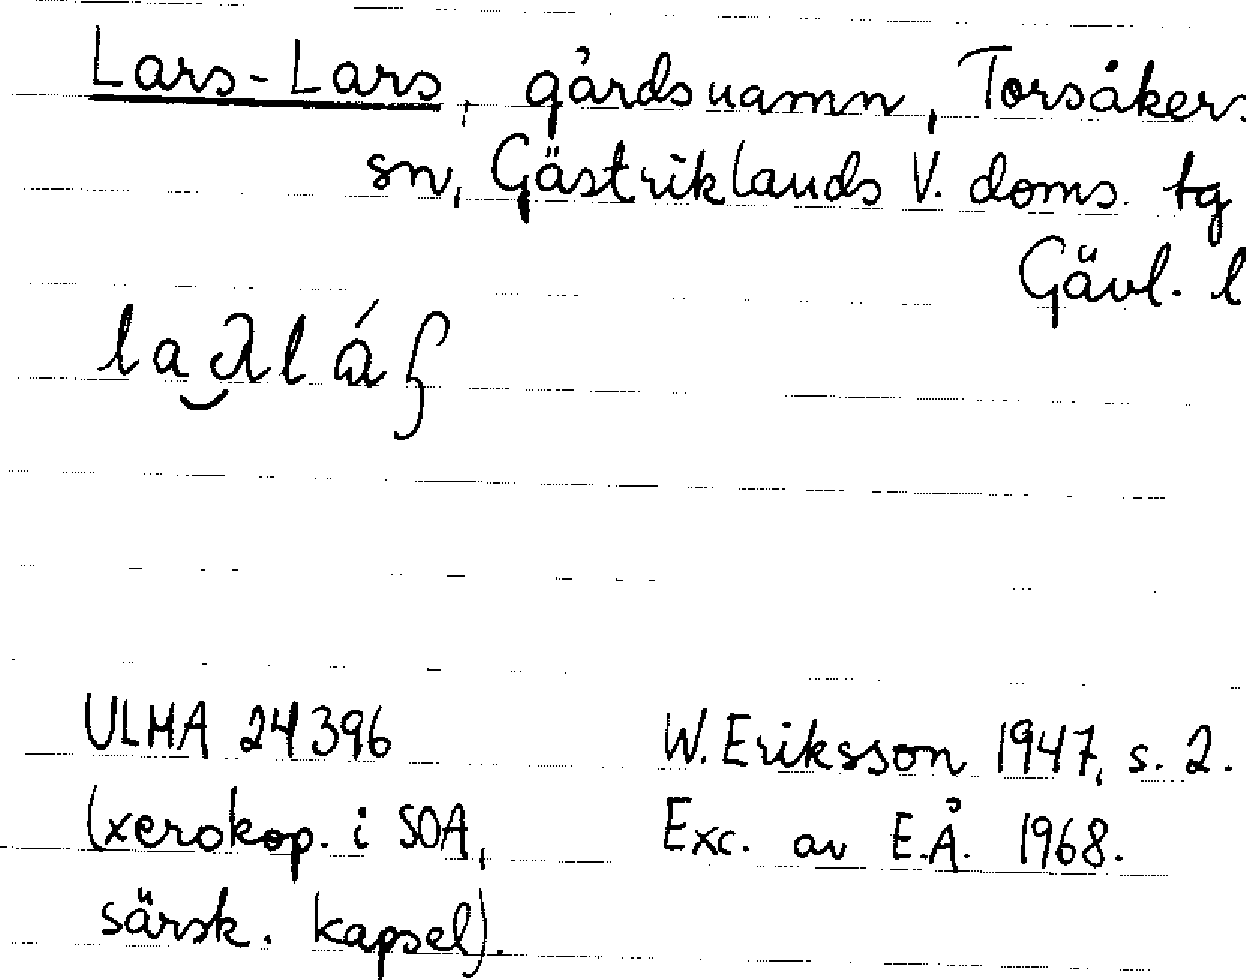 Lars-Lars, gårdsnamn, Torsåkers
sn, Gästriklands V. doms. tg
Gävl. l
ULMA 24396 W. Eriksson 1947, s. 2.
(xerokop. i SOA, Exc. av E.Å. 1968.
särsk. kapsel).